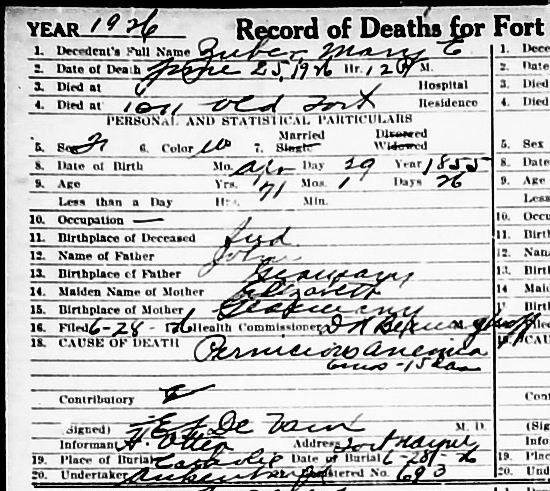 YEAR 1926 Record of Deaths for Fort
1. Decedent's Full Name Zuber Mary E
2. Date of Death June 25, 1926 Hr. 120 M.
3. Died at Hospital
4. Died at 1011 Old Fort Residence
PERSONAL AND STATISTICAL PARTICULARS
5. Sex F 6. Color W 7. Married Single Divorced Widowed
8. Date of Birth Mo. Apr Day 29 Year 1855
9. Age Yrs. 71 Mos. 1 Days 26
Less than a Day Hrs. Min.
10. Occupation —
11. Birthplace of Deceased Ind.
12. Name of Father John
13. Birthplace of Father Germany
14. Maiden Name of Mother Elizabeth
15. Birthplace of Mother Germany
16. Filed 6-28-26 Health Commissioner M. D.
18. CAUSE OF DEATH Pernicious anemia
6 mos - 15 days
Contributory
(Signed) M. D.
Informant H. Otten Address Fort Wayne
19. Place of Burial Catholic Date of Burial 6-28-26
20. Undertaker Registered No. 693
1. Dece
2. Date
3. Died
4. Died
5. Sex
8. Date
9. Age
Less
10. Occu
11. Birth
12. Nam
13. Birth
14. Maid
16. Filed
CAU
Cont
(Sig
Infor
19. Place
20. Unde